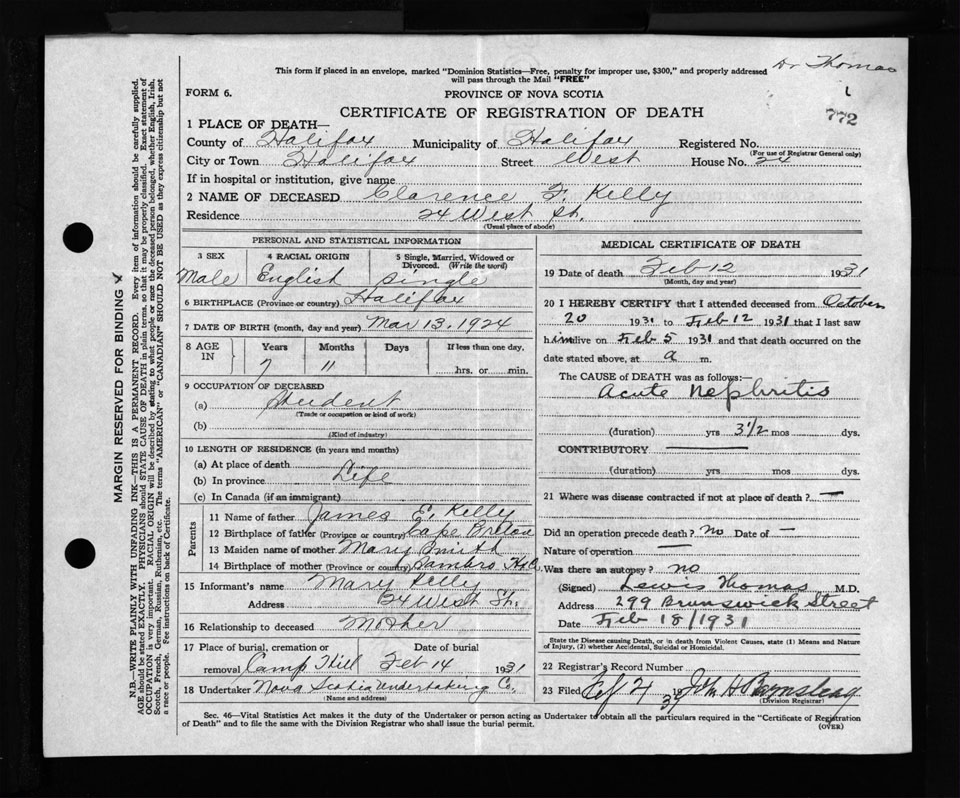 Dr Thomas
This form if placed in an envelope, marked "Dominion Statistics—Free, penalty for improper use, $300," and properly addressed
will pass through the Mail "FREE"
FORM 6.
PROVINCE OF NOVA SCOTIA
772
CERTIFICATE OF REGISTRATION OF DEATH
1 PLACE OF DEATH—
County of Halifax Municipality of Halifax Registered No.
(For use of Registrar General only)
City or Town Halifax Street West House No. 24
If in hospital or institution, give name
2 NAME OF DECEASED Clarence F. Kelly
Residence 24 West St.
(Usual place of abode)
PERSONAL AND STATISTICAL INFORMATION
3 SEX 4 RACIAL ORIGIN 5 Single, Married, Widowed or
Divorced. (Write the word)
Male English Single
6 BIRTHPLACE (Province or country) Halifax
7 DATE OF BIRTH (month, day and year) Mar 13, 1924
8 AGE IN Years Months Days If less than one day,
7 11 hrs. or min.
9 OCCUPATION OF DECEASED
(a) Student
(Trade or occupation or kind of work)
(b)
(Kind of industry)
10 LENGTH OF RESIDENCE (in years and months)
(a) At place of death
(b) In province Life
(c) In Canada (if an immigrant)
Parents
11 Name of father James E. Kelly
12 Birthplace of father (Province or country) Cape Breton
13 Maiden name of mother Mary Smith
14 Birthplace of mother (Province or country) Sambro Hfx Co
15 Informant's name Mary Kelly
Address 24 West St.
16 Relationship to deceased Mother
17 Place of burial, cremation or Date of burial
removal Camp Hill Feb 14 1931
18 Undertaker Nova Scotia Undertaking C.
(Name and address)
MEDICAL CERTIFICATE OF DEATH
19 Date of death Feb 12 1931
(Month, day and year)
20 I HEREBY CERTIFY that I attended deceased from October
20 1931 to Feb 12 1931 that I last saw
him live on Feb 5 1931 and that death occurred on the
date stated above, at a m.
The CAUSE OF DEATH was as follows:—
Acute Nephritis
(duration) yrs 3 1/2 mos dys.
CONTRIBUTORY —
(duration) yrs mos dys.
21 Where was disease contracted if not at place of death? —
Did an operation precede death? No Date of —
Nature of operation —
Was there an autopsy? no
(Signed) Lewis Thomas M.D.
Address 299 Brunswick Street
Date Feb 18/1931
State the Disease causing Death, or in death from Violent Causes, state (1) Means and Nature
of Injury, (2) whether Accidental, Suicidal or Homicidal.
22 Registrar's Record Number
23 Filed 19
(Division Registrar)
Sec. 46—Vital Statistics Act makes it the duty of the Undertaker or person acting as Undertaker to obtain all the particulars required in the "Certificate of Registration
of Death" and to file the same with the Division Registrar who shall issue the burial permit.
(OVER)
MARGIN RESERVED FOR BINDING
N.B.—WRITE PLAINLY WITH UNFADING INK—THIS IS A PERMANENT RECORD. Every item of information should be carefully supplied.
AGE should be stated EXACTLY. PHYSICIANS should STATE CAUSE OF DEATH in plain terms, so that it may be properly classified. Exact statement of
OCCUPATION is very important. RACIAL ORIGIN will be described by stating to what people or race the deceased person belonged, whether English, Irish,
Scotch, French, German, Russian, Ruthenian, etc. The terms "AMERICAN" or "CANADIAN" SHOULD NOT BE USED as they express citizenship but not
a race or people. See instructions on back of Certificate.